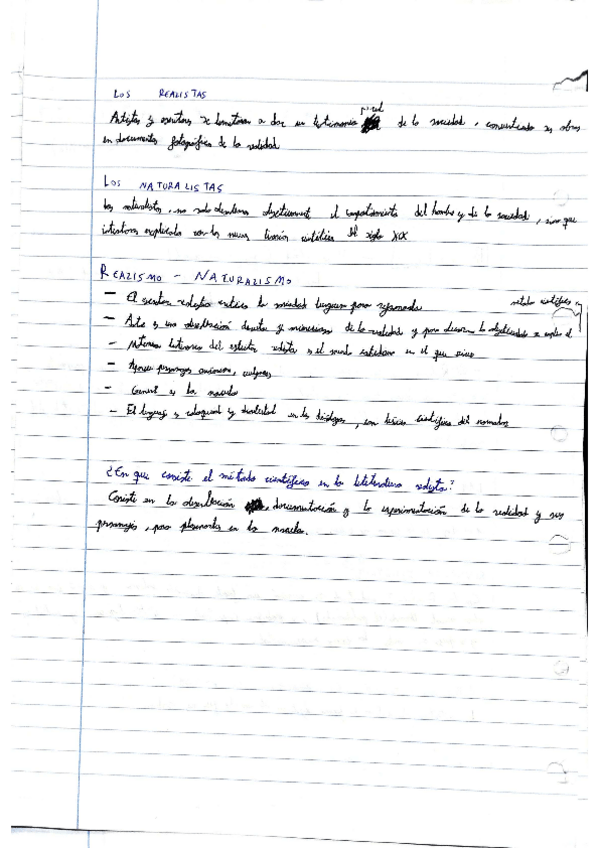 LOS REALISTAS
Artistas y escritores se a dar un testimonio de la sociedad, convirtiendo sus obras
en documentos fotográficos de la realidad
LOS NATURALISTAS
Los naturalistas, no solo objetivament el comportamiento del hombre y de la sociedad, sino que
intentaron explicarla con las nuevas teorías científicas del siglo XIX
REALISMO - NATURALISMO
- El escritor realista critica la sociedad burguesa para reformarla
método científico
- Arte es una observación directa y minuciosa de la realidad y para la objetividad se emplea el
- literario del realista es el mundo en el que vive
- personajes
- es la novela
- El lenguaje es coloquial y dialectal en los diálogos, con científica del narrador
¿En que consiste el método científico en la literatura realista?
Consiste en la observación, documentación y la experimentación de la realidad y sus
personajes, para plasmarlos en la novela.